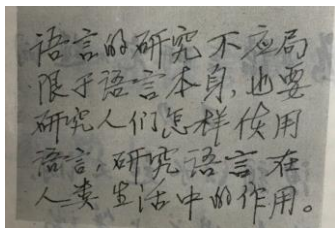 语言的研究不应局
限于语言本身,也要
研究人们怎样使用
语言,研究语言在
人类生活中的作用。